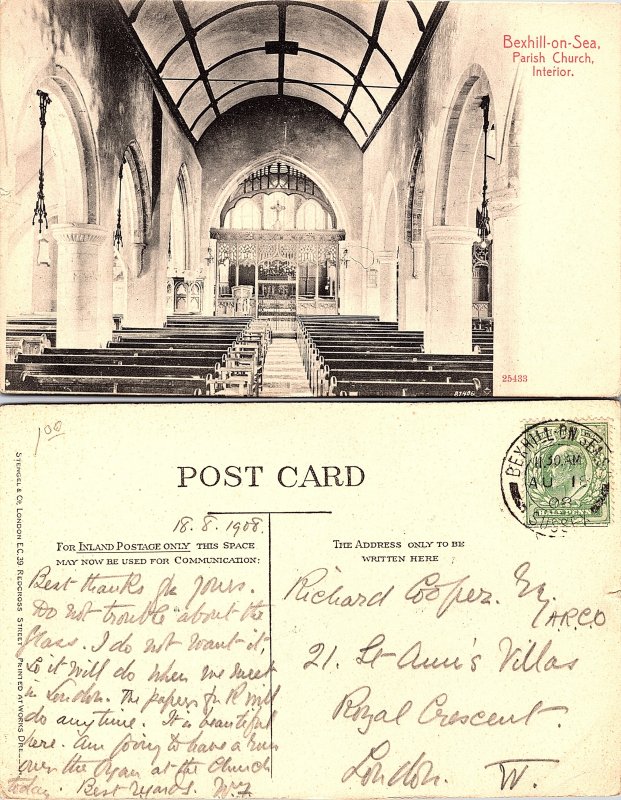 Bexhill-on-Sea,
Parish Church,
Interior.
25433
1.00
POST CARD
BEXHILL-ON-SEA
11.30 AM
AU 18
08
SUSSEX
HALFPENNY
STENGEL & Co, LONDON E.C. 39 REDCROSS STREET PRINTED AT WORKS DRE
18.8.1908.
FOR INLAND POSTAGE ONLY THIS SPACE
MAY NOW BE USED FOR COMMUNICATION:
THE ADDRESS ONLY TO BE
WRITTEN HERE
Best thanks for yours.
Do not trouble about the
glass. I do not want it,
so it will do when we meet
in London. The papers for R will
do anytime. It is beautiful
here. Am going to have a run
over the organ at the Church
today. Best regards.
Richard Cooper. Esq.
ARCO
21. St Ann's Villas
Royal Crescent.
London. W.